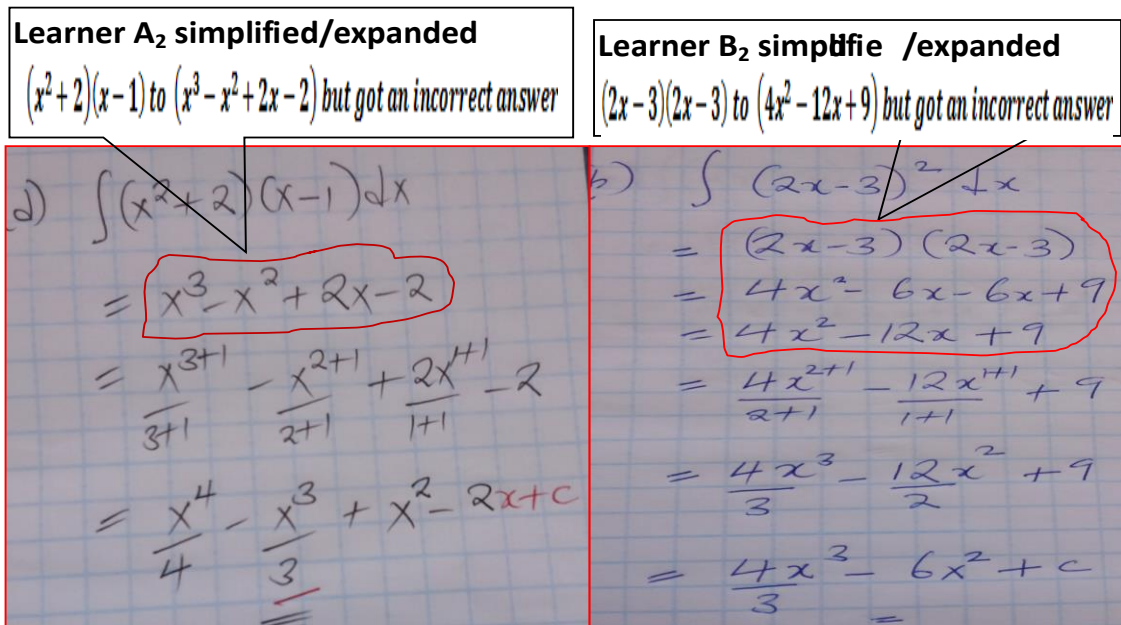 Learner A₂ simplified/expanded
(x² + 2)(x − 1) to (x³ − x² + 2x − 2) but got an incorrect answer
Learner B₂ simplifie /expanded
(2x − 3)(2x − 3) to (4x² − 12x + 9) but got an incorrect answer
d) ∫(x²+2)(x−1)dx
= x³ − x² + 2x − 2
= x³⁺¹/3+1 − x²⁺¹/2+1 + 2x¹⁺¹/1+1 − 2
= x⁴/4 − x³/3 + x² − 2x+c
b) ∫ (2x−3)² dx
= (2x−3)(2x−3)
= 4x² − 6x − 6x + 9
= 4x² − 12x + 9
= 4x²⁺¹/2+1 − 12x¹⁺¹/1+1 + 9
= 4x³/3 − 12x²/2 + 9
= 4x³/3 − 6x² + c